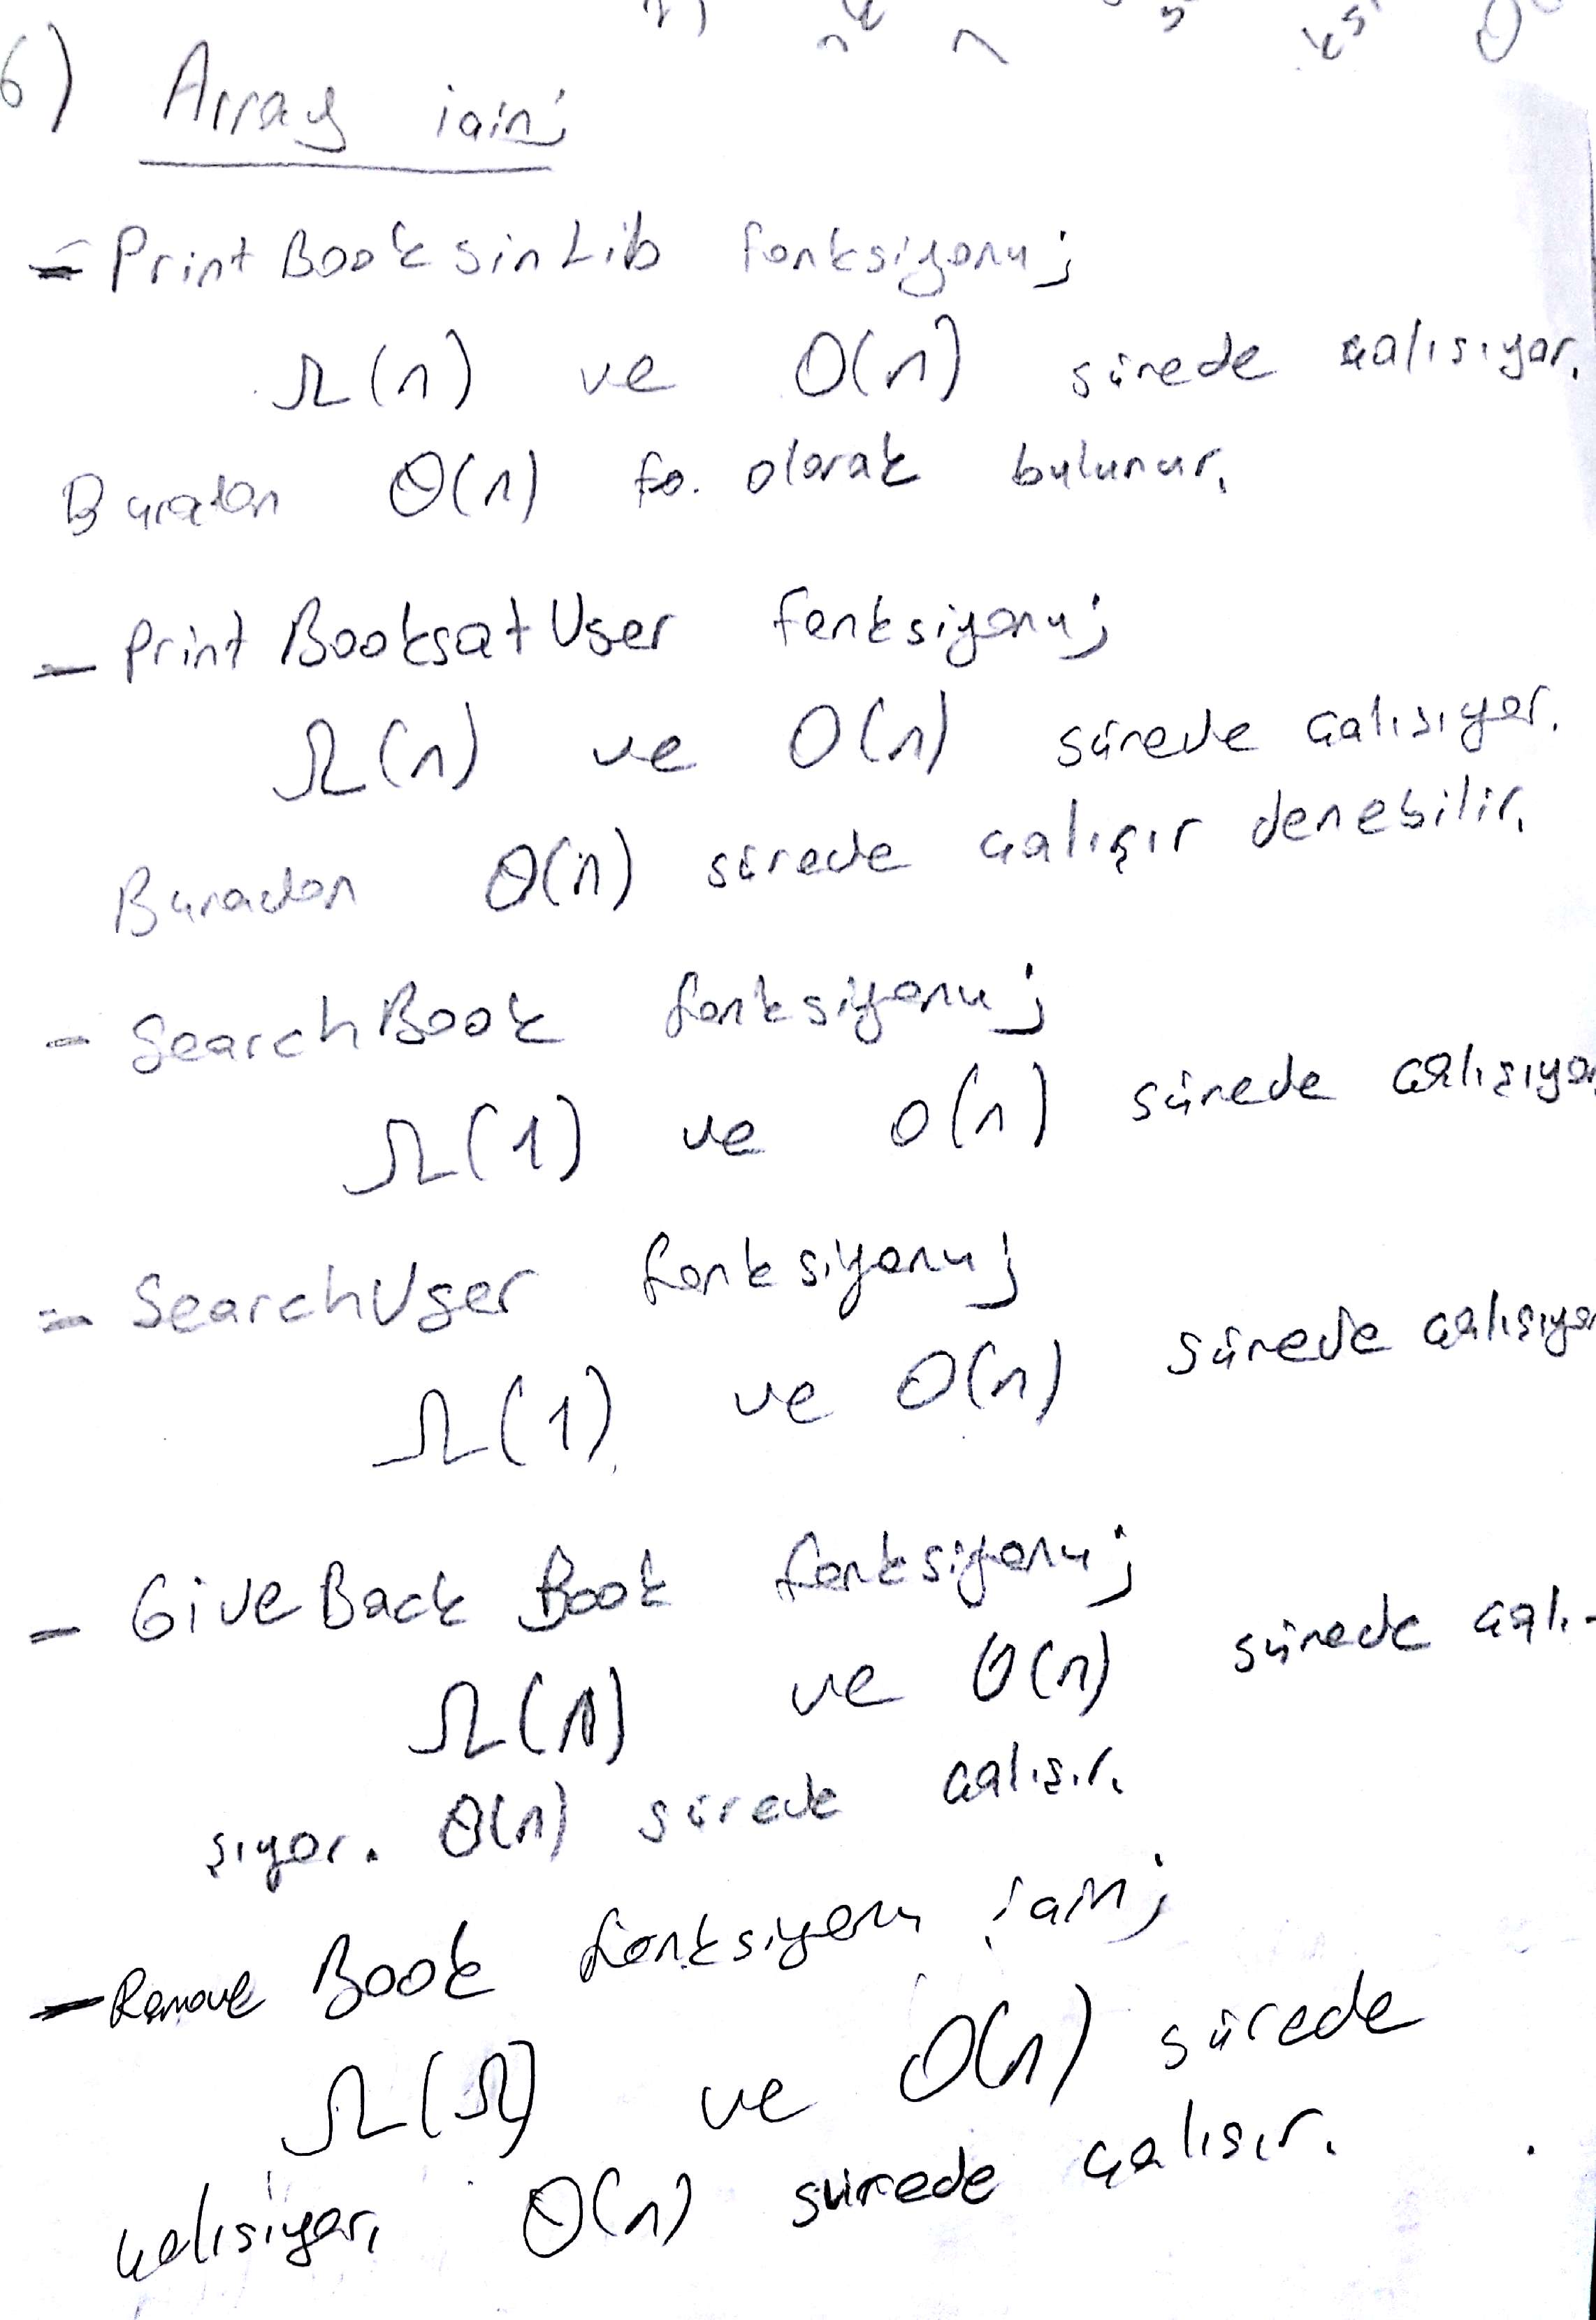 6) Array için;
- PrintBooksinLib fonksiyonu;
Ω(n) ve O(n) sürede çalışıyor.
Buradan Θ(n) fo. olarak bulunur.
- Print BooksatUser fonksiyonu;
Ω(n) ve O(n) sürede çalışıyor.
Buradan Θ(n) sürede çalışır denebilir.
- SearchBook fonksiyonu;
Ω(1) ve O(n) sürede çalışıyor
- SearchUser fonksiyonu;
Ω(1) ve O(n) sürede çalışıyor
- GiveBack Book fonksiyonu;
Ω(n) ve O(n) sürede çalı-
şıyor. Θ(n) sürede çalışır.
- Remove Book fonksiyonu için;
Ω(n) ve O(n) sürede
çalışıyor. Θ(n) sürede çalışır.